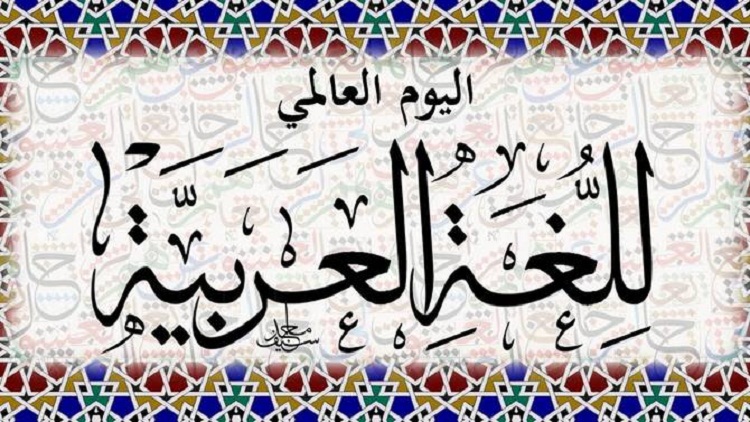 اليوم العالمي
لِلُّغَةِ العَرَبِيَّة